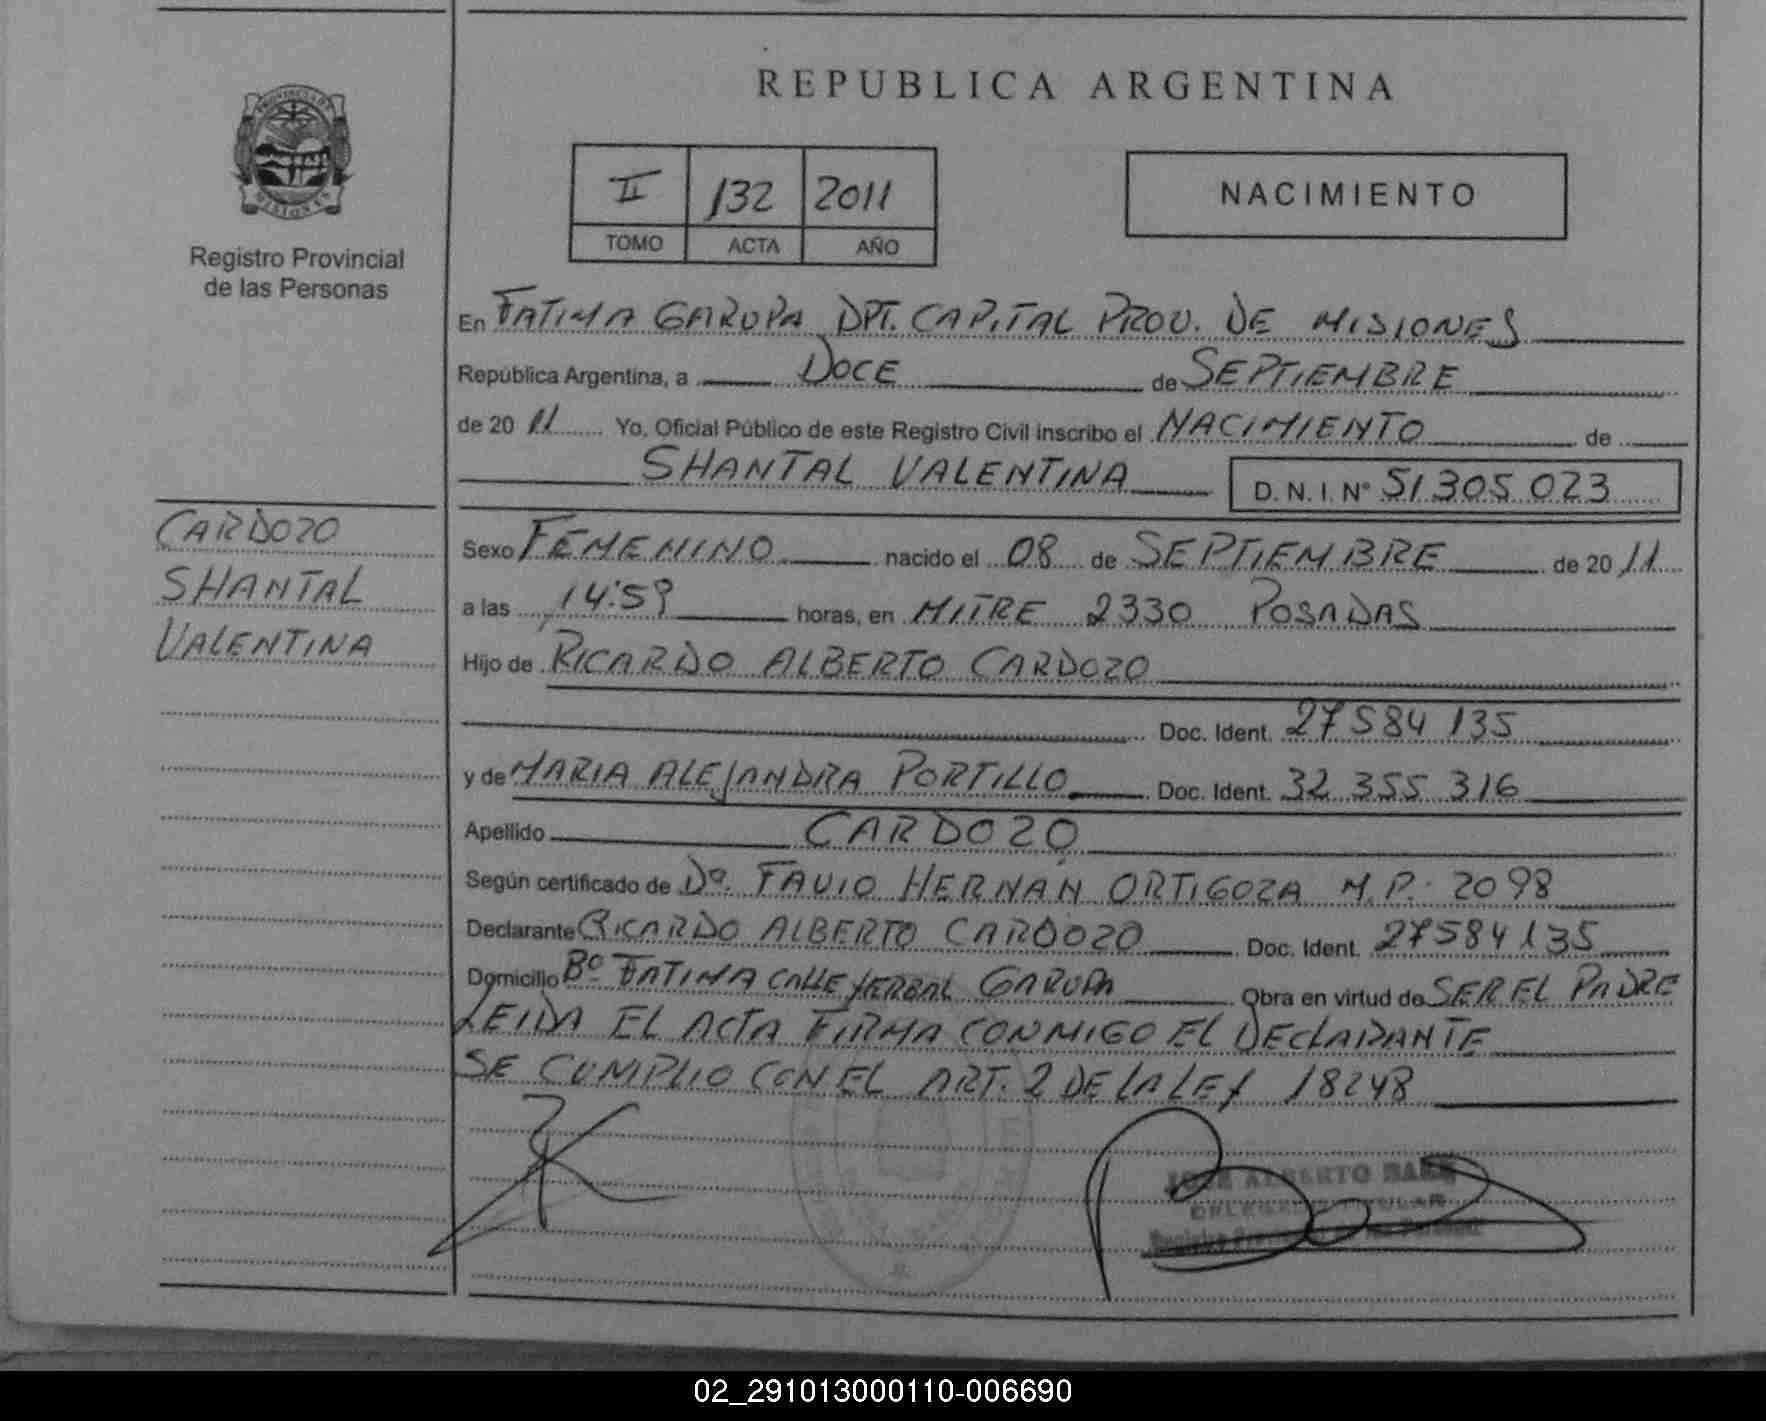 REPUBLICA ARGENTINA
PROVINCIA DE
MISIONES
Registro Provincial
de las Personas
II 132 2011
TOMO ACTA AÑO
NACIMIENTO
En FATIMA GARUPA DPT. CAPITAL PROV. DE MISIONES
República Argentina, a DOCE de SEPTIEMBRE
de 20 11 Yo, Oficial Público de este Registro Civil inscribo el NACIMIENTO de
SHANTAL VALENTINA D. N. I. Nº 51 305 023
CARDOZO
SHANTAL
VALENTINA
Sexo FEMENINO nacido el 08 de SEPTIEMBRE de 20 11
a las 14:59 horas, en MITRE 2330 POSADAS
Hijo de RICARDO ALBERTO CARDOZO
Doc. Ident. 27584 135
y de MARIA ALEJANDRA PORTILLO Doc. Ident. 32 355 316
Apellido CARDOZO
Según certificado de Dº. FAVIO HERNAN ORTIGOZA M.P. 2098
Declarante RICARDO ALBERTO CARDOZO Doc. Ident. 27584135
Domicilio Bº FATIMA CALLE YERBAL GARUPA Obra en virtud de SER EL PADRE
LEIDA EL ACTA FIRMA CONMIGO EL DECLARANTE
SE CUMPLIO CON EL ART. 2 DE LA LEY 18248
JOSE ALBERTO BAEZ
DELEGADO TITULAR
Registro Provincial de las Personas
02_291013000110-006690